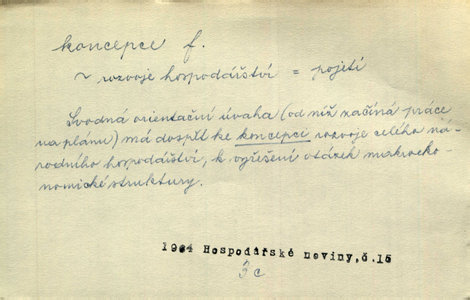 koncepce f.
~ rozvoje hospodářství = pojetí
Svodná orientační úvaha (od níž začíná práce
na plánu) má dospět ke koncepci rozvoje celého ná-
rodního hospodářství, k vyřešení otázek makroeko-
nomické struktury.
1964 Hospodářské noviny,č.15
3c